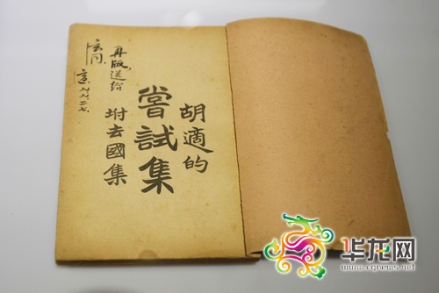 胡適的
嘗試集
坿去國集
再版送给
玄同
华龙网
www.cqnews.net